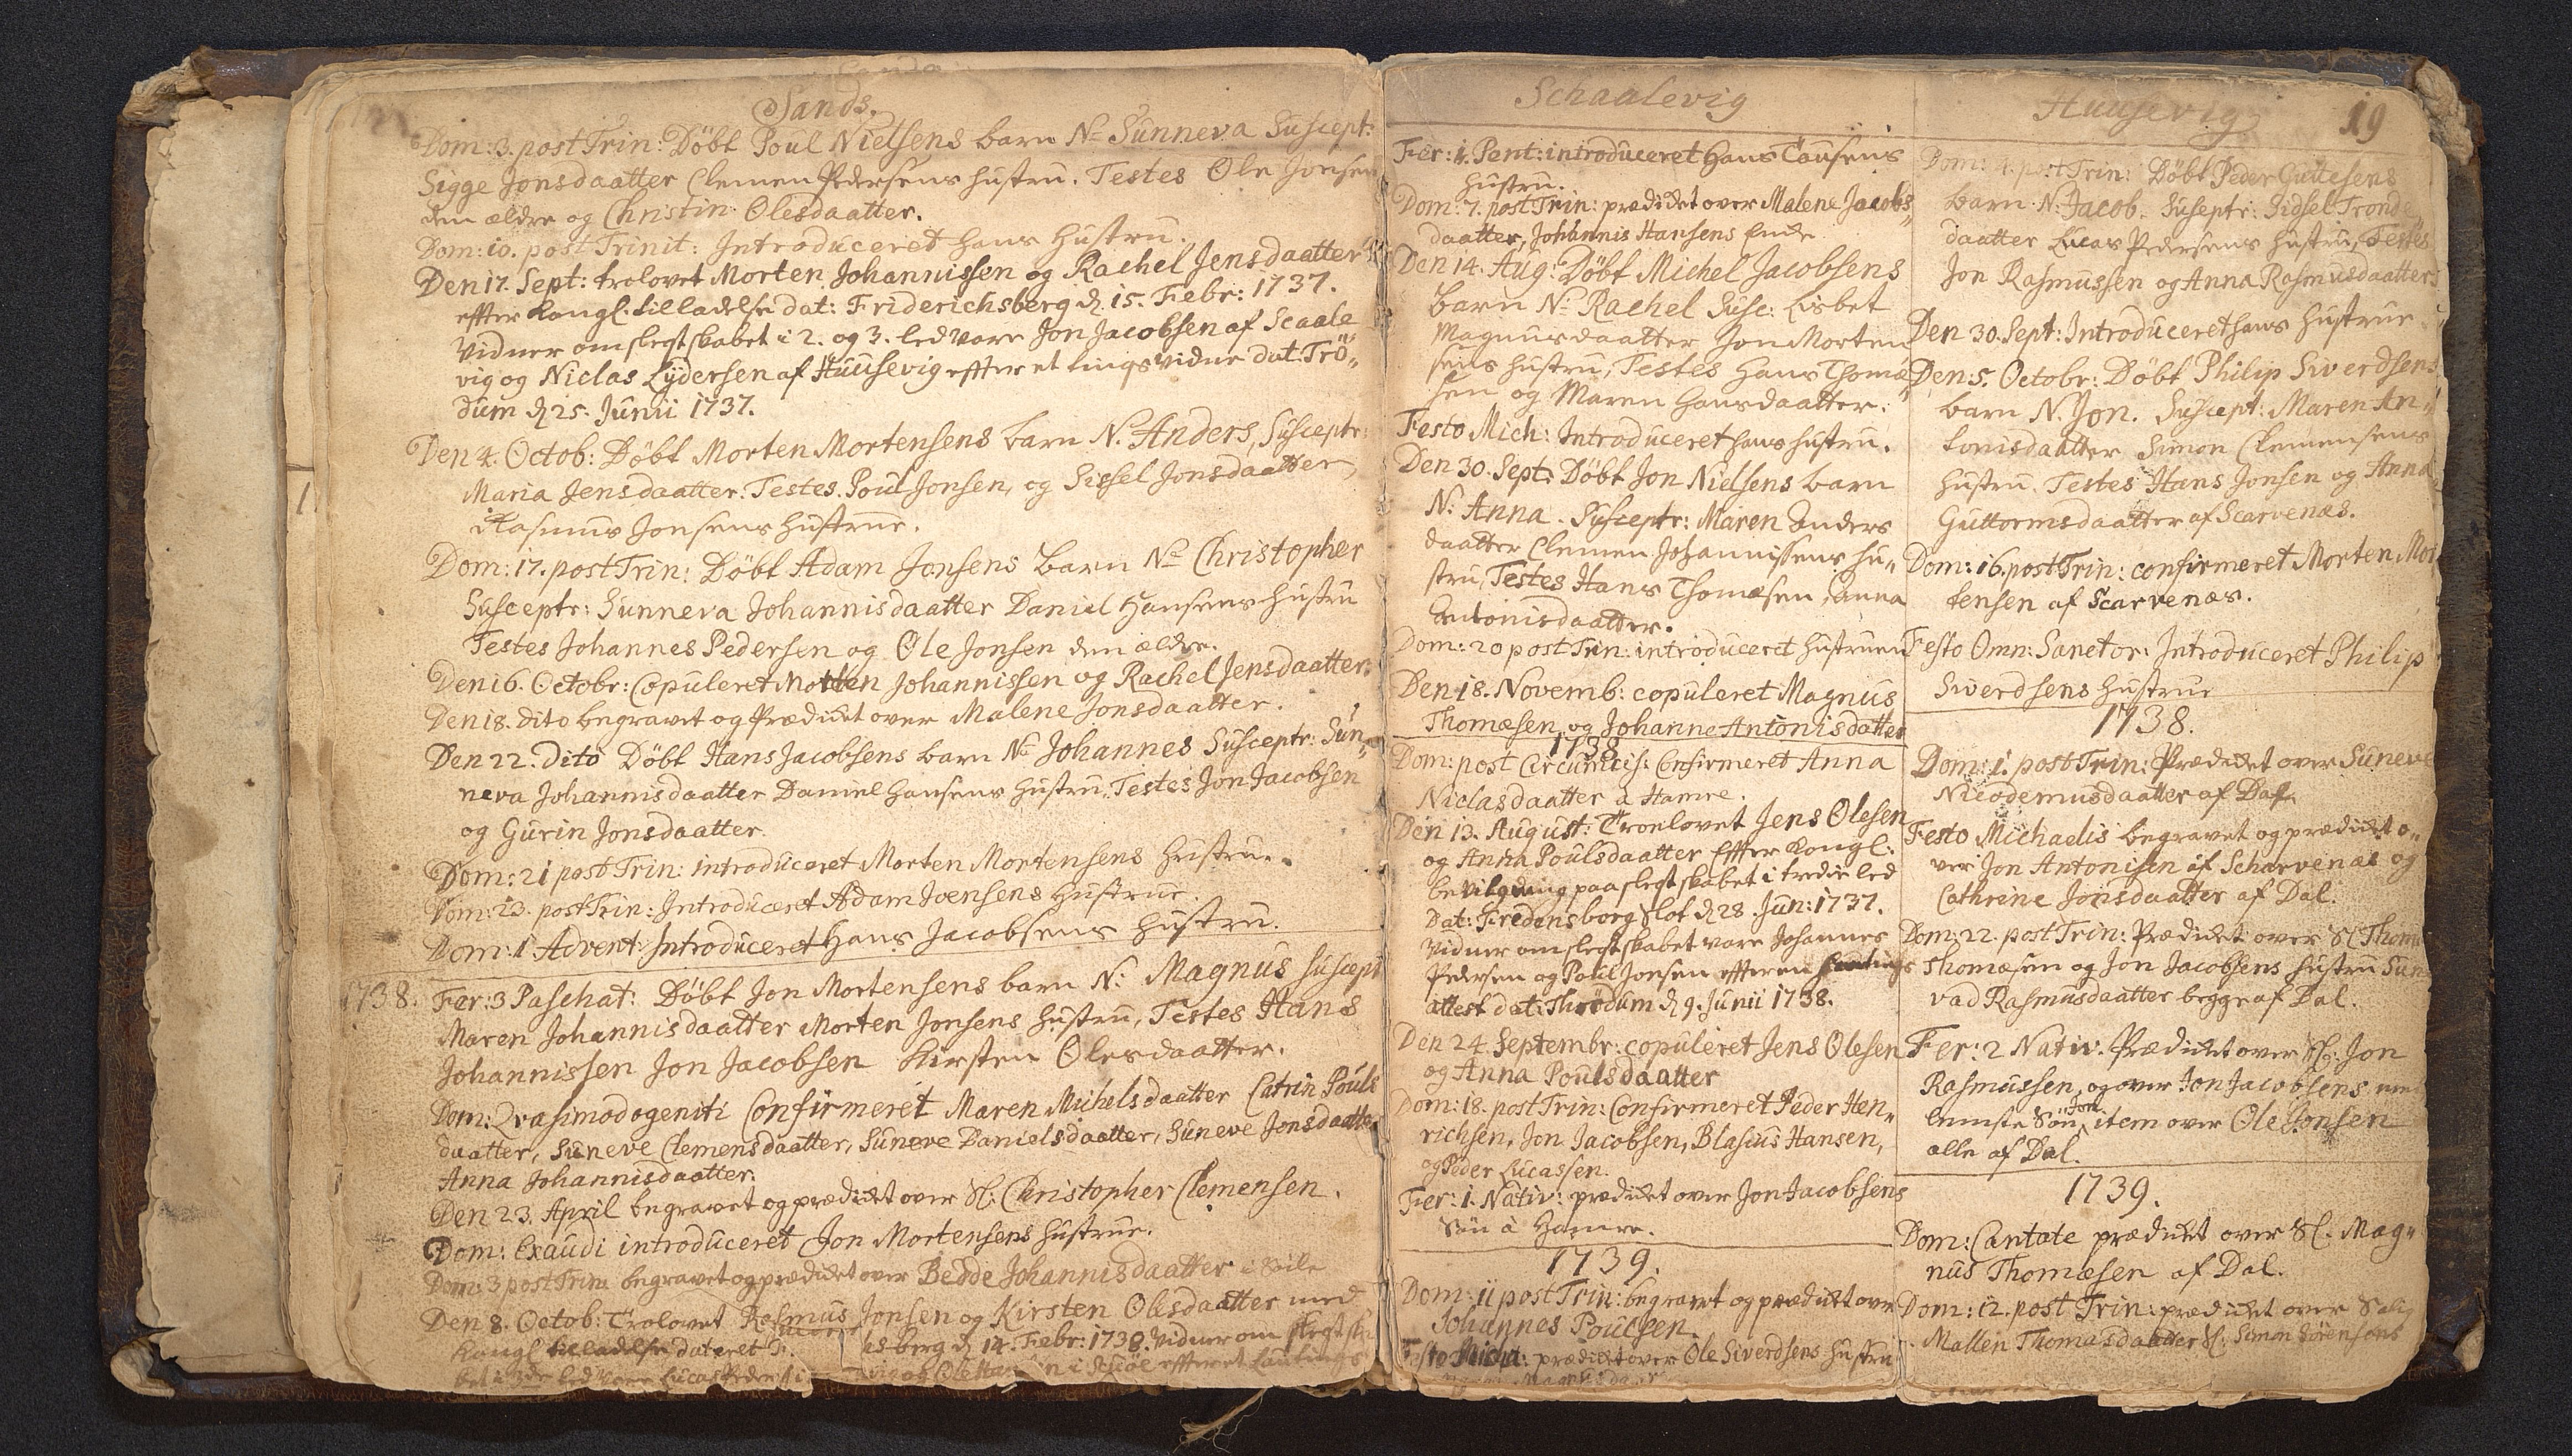 Sands.
Dom: 3. post Trin: Döbt Poul Nielsens barn N: Sunneva Suscept:
Sigge Jonsdaatter Clemen Pedersens hustru. Testes Ole Jonsen
den ældre og Christin Olesdaatter.
Dom: 10. post Trinit: Introduceret hans hustru.
Den 17. Sept: trolovet Morten Johannissen og Rachel Jensdaatter
effter Kongl. tilladelse dat: Friderichsberg d. 15. Febr: 1737.
Vidner om slegtskabet i 2. og 3. led vare Jon Jacobsen af Scaale
vig og Niclas Lydersen af Huusevig effter et tingsvidne dat. Trö„
dum d 25. Junii 1737.
Den 4. Octob: Döbt Morten Mortensens barn N. Anders, Susceptr:
Maria Jensdaatter. Testes. Poul Jonsen, og Sissel Jonsdaatter,
Rasmus Jonsens hustrue.
Dom: 17. post Trin: Döbt Adam Jonsens barn N: Christopher
Susceptr: Sunneva Johannisdaatter Daniel Hansens hustru
Testes Johannes Pedersen og Ole Jonsen den ældre.
Den 16. Octobr: Copuleret Morten Johannissen og Rachel Jensdaatter.
Den 18. dito begravet og Prædicket over Malene Jonsdaatter.
Den 22. Dito Döbt Hans Jacobsens barn N: Johannes Susceptr: Sun„
neva Johannisdaatter Daniel Hansens hustru, Testes Jon Jacobsen
og Gurin Jonsdaatter.
Dom: 21 post Trin: introduceret Morten Mortensens hustrue.
Dom: 23. post Trin: Introduceret Adam Joensens hustrue.
Dom: 1 Advent: Introduceret Hans Jacobsens hustru.
1738. Fer: 3 Paschat: Döbt Jon Mortensens barn N: Magnus suscept
Maren Johannisdaatter Morten Jonsens hustru, Testes Hans
Johannissen Jon Jacobsen Kirsten Olesdaatter.
Dom: Qvasimodogeniti Confirmeret Maren Michelsdaatter Catrin Pouls
daatter, Suneve Clemensdaatter, Suneve Danielsdaatter, Suneve Jonsdaatter
Anna Johannisdaatter.
Den 23. April begravet og prædicket over Sl: Christopher Clemensen.
Dom: Exaudi introduceret Jon Mortensens hustrue.
Dom: 3 post Trin begravet og prædicket over Bedde Johannisdaatter
Den 8. Octob: Trolovet Rasmus Jonsen og Kirsten Olesdaatter med
Kongl tilladelse dateret berg d 14. Febr: 1738. Vidner om slegtska
bet i led vare Lucas Peders
Schaalevig
Fer: 1. Pent: introduceret Hans Tausens
hustru.
Dom: 7. post Trin: prædicket over Malene Jacobs„
daatter, Johannis Hansens Enke
Den 14. Aug: Döbt Michel Jacobsens
barn N: Rachel Susc: Lisbet
Magnusdaatter Jon Morten
sens hustru, Testes Hans Thomæ
sen og Maren Hansdaatter.
Festo Mich: Introduceret hans hustru.
Den 30. Sept: Döbt Jon Nielsens barn
N: Anna. Susceptr: Maren Anders
daatter Clemen Johannissens hu„
stru, Testes Hans Thomæsen, Anna
Antonisdaatter.
Dom: 20 post Trin: introduceret hustruen
Den 18. Novemb: copuleret Magnus
Thomæsen og Johanne Antonisdatter
1738
Dom: post Circumcis: Confirmeret Anna
Niclasdaatter a Hamre.
Den 13. August: Troelovet Jens Olesen
og Anna Poulsdaatter Effter Kongl:
bevilgning paa slegtskabet i tredie led
Dat: Fredensborg Slot d 28. Jun: 1737.
Vidner om slegtskabet vare Johannes
Pedersen og Poul Jonsen effter en
attest dat: Thrödum d 9. Junii 1738.
Den 24. Septembr: copuleret Jens Olesen
og Anna Poulsdaatter
Dom: 18. post Trin: Confirmeret Peder Hen„
richsen, Jon Jacobsen, Blasius Hansen,
og Peder Lucassen.
Fer: 1. Nativ: prædicket over Jon Jacobsens
Sön à Hamre.
1739.
Dom: 11 post Trin: begravet og prædicket over
Johannes Poulsen.
Festo Mich: prædicket over Ole Siverdsens hustru
Huusevig 19
Dom: 4. post Trin: Döbt Peder Guttesens
barn N: Jacob. Suseptr: Sidsel Tronds„
daatter Lucas Pedersens hustru, Testes
Jon Rasmussen og Anna Rasmusdaatter
Den 30. Sept: Introduceret hans hustrue
Den 5. Octobr: Döbt Philip Siverdsens
barn N. Jon. Suscept: Maren An„
tonisdaatter Simon Clemensens
hustru. Testes Hans Jonsen og Anna
Guttormsdaatter af Scarvenæs.
Dom: 16. post Trin: confirmeret Morten Mor
tensen af Scarvenæs.
Festo Omn: Sanctor: Introduceret Philip
Siverdsens hustrue
1738.
Dom: 1. post Trin: Prædicket over Suneve
Nicodemusdaatter af Dal.
Festo Michaelis begravet og prædicket o„
ver Jon Antonisen af Scharvenæs og
Cathrine Jonsdaatter af Dal.
Dom: 22. post Trin: Prædicket over Sl Thom
Thomæsen og Jon Jacobsens hustru Sun
vad Rasmusdaatter begge af Dal.
Fer: 2 Nativ. Prædicket over Sl: Jon
Rasmussen, og over Jon Jacobsens
Sön Jon, item over Ole Jonsen
alle af Dal.
1739.
Dom: Cantate prædicket over Sl. Mag„
nus Thomæsen af Dal.
Dom: 12. post Trin: prædicket over Salig
Mallen Thomasdaatter Sl: Simon Sörensens